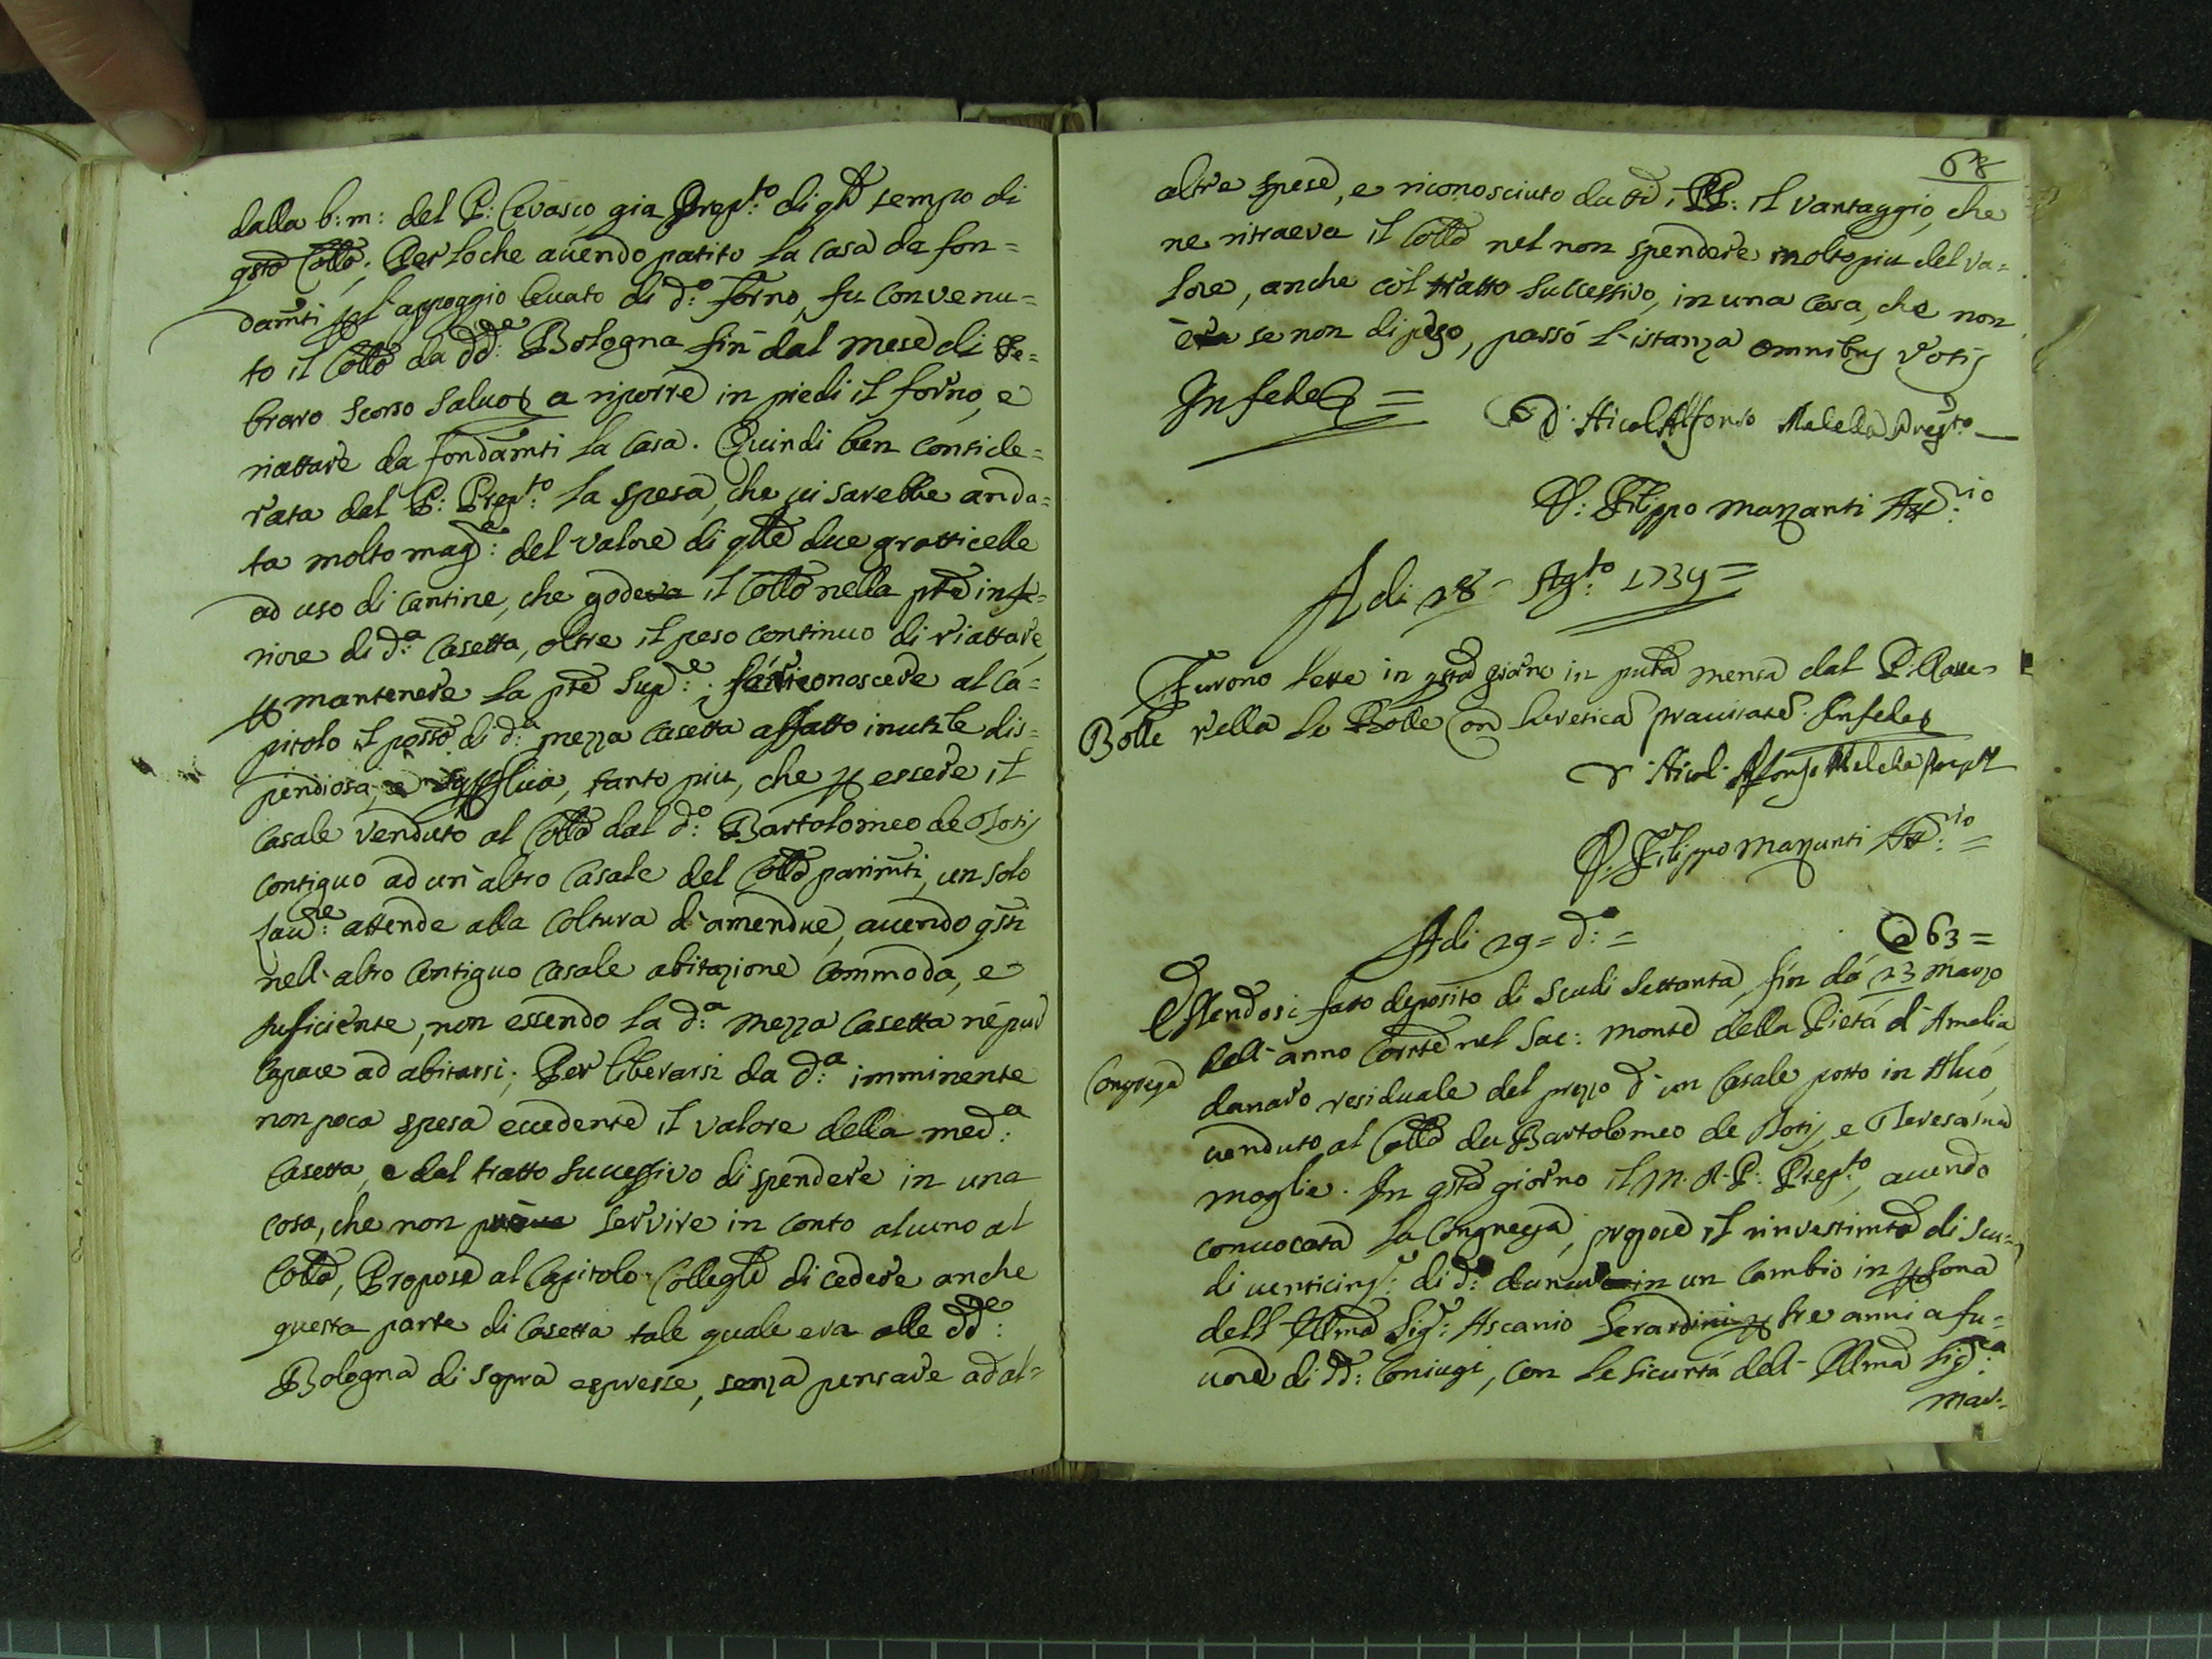 dalla b: m: del P: Cevasco, gia Prep:to di qllo tempo di
qsto Collo. Per loche avendo patito la Casa da fon=
dam̃ti p l'appoggio levato di d:o forno, fu convenu=
to il Collo da dd:e Bologna fin dal mese di Fe=
braro scorso a riporre in piedi il forno, e
riattare da fondam̃ti la Casa. Quindi ben conside=
rata dal P: Prep:to la spesa, che vi sarebbe anda=
ta molto mag:e del valore di qlle due grotticelle
ad uso di Cantine, che godeva il Collo nella pte infe=
riore di d:a Casetta, oltre il peso continuo di riattare,
p mantenere la pte sup:e; fá riconoscere al Ca=
pitolo il posso di d:a mezza Casetta affatto inutile dis=
pendiosa, e supflua, tanto piu, che p essere il
Casale venduto al Collo dal d:o Bartolomeo de Totis
contiguo ad un' altro Casale del Collo parim̃ti, un solo
Lav:e attende alla coltura d' amendue, avendo qsti
nell' altro contiguo Casale abitazione commoda, e
suficiente, non essendo la d:a mezza Casetta né pur
capace ad abitarsi; Per liberarsi da d:a imminente
non poca spesa eccedente il valore della med:a
Casetta, e dal tratto successivo di spendere in una
cosa, che non servire in conto alcuno al
Collo, Propose al Capitolo Collegle di cedere anche
questa parte di Casetta tale quale era alle dd:e
Bologna di sopra espresse, senza pensare ad al=
68
altre spese, e riconosciuto da tti i PP: il vantaggio, che
ne ritraeva il Collo nel non spendere molto piu del va=
lore, anche col tratto successivo, in una cosa, che non
era se non di peso, passó l'istanza omnibus votis
In fede =
D. Nicol' Alfonso Melella Prep:to
D: Filippo Manzanti Att:rio
A di 28 - Ag:to 1739 =
Furono lette in qsto giorno in publa mensa dal P: Rave=
Bolle rella le Bolle Con heretica pravitate. In fede
D. Nicol' Alfonso Melella Prep:to
D: Filippo Manzanti Att:rio =
A di 29 = d:o =
@ 63 =
Essendosi fatto deposito di scudi settanta, fin dá 23 Marzo
dell' anno corrte nel Sac: Monte della Pietá d' Amelia
Congrega
danaro residuale del prezzo d' un Casale posto in
venduto al Collo da Bartolomeo de Totis, e Teresa sua
moglie. In qsto giorno il M. R. P: Prep:to, avendo
convocata la Congrega, propose il rinvestimto di scu=
di venticinq: di d:o danaro in un Cambio in psona
dell' Illmo Sig:r Ascanio Gerardini p tre anni a fa=
vore di dd: Coniugi, con le sicurtá dell' Illma Sig:ra
Mar=